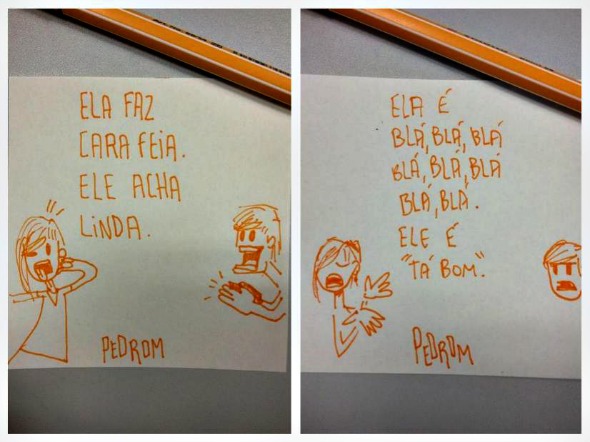 ELA FAZ
CARA FEIA.
ELE ACHA
LINDA.
PEDROM
ELA É
BLÁ, BLÁ, BLÁ
BLÁ, BLÁ, BLÁ
BLÁ, BLÁ.
ELE É
"TÁ BOM."
PEDROM